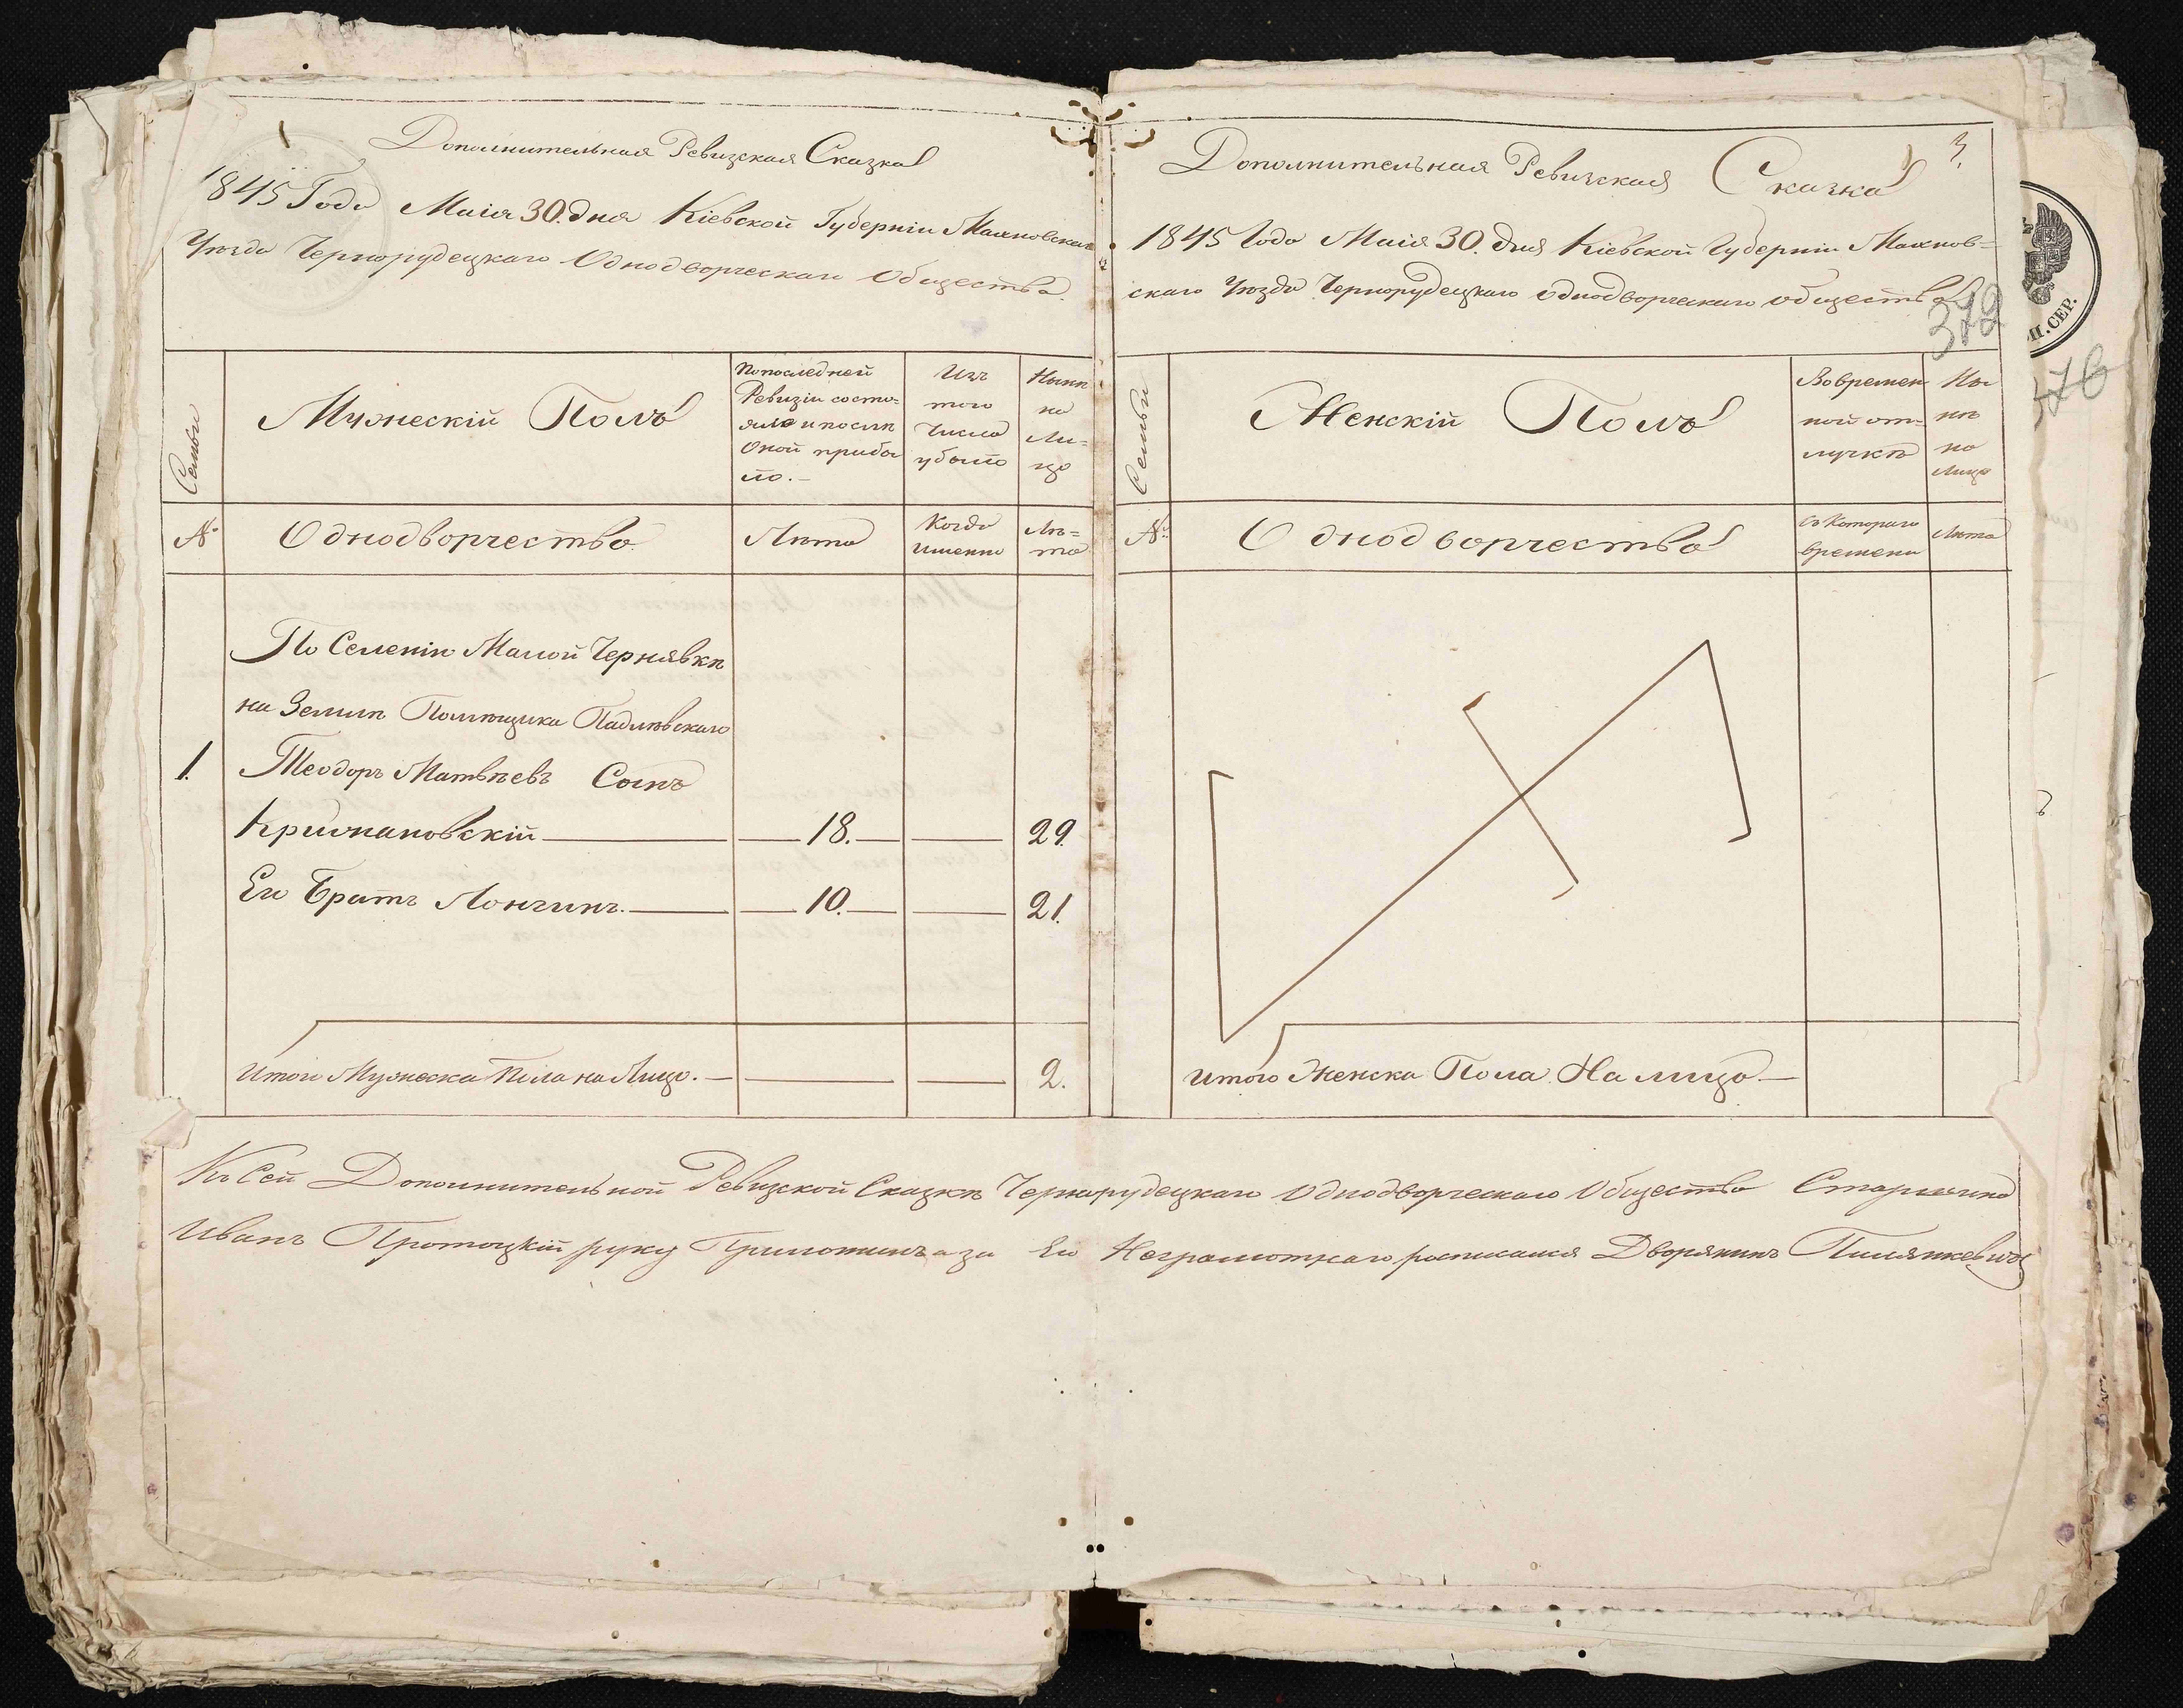 Дополнительная Ревизская Сказка
1845 Года Маія 30. дня Кіевской Губерніи Махновскаго
Уѣзда Чернорудецкаго Однодворческаго Общества.
Семьи
Мужескій Полъ
По последней
Ревизіи состо-
яло и послѣ
Оной прибы
ло.-
Изъ
того
Числа
убыло
Нынѣ
на
Ли-
цо
№
Однодворчество.
Лѣта
Когда
именно
Лѣ-
та
По Селенію Малой Чернявкѣ
на Землѣ Помѣщика Падлѣвскаго
1. Теодоръ Матвѣевъ Сынъ
18. 29.
Его Братъ Лонгинъ. 10. 21.
Итого Мужеска Пола на Лицо. 2.
Дополнительная Ревизская Сказка
3.
1845 Года Маія 30. дня Кіевской Губерніи Махнов-
скаго Уѣзда Чернорудецкаго Однодворческаго общества
372
376
М. СЕР.
Семьи
Женскій Полъ
Во времен
ной от-
лучкѣ
Ны
нѣ
на
Лицо
№
Однодворчество
Съ Котораго
времени
Лѣта
Итого Женска Пола На лицо
Къ Сей Дополнительной Ревизской Сказкѣ Чернорудецкаго Однодворческаго Общества Старшина
Иванъ Протоцкій руку Приложилъ а за Его Неграмотнаго росписался Дворянинъ